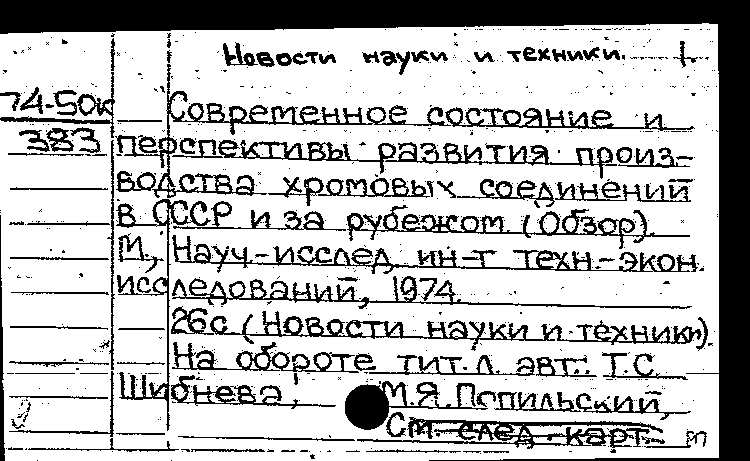 Новости науки и техники. 1.
74-50к Современное состояние и
383 перспективы развития произ-
водства хромовых соединений
в СССР и за рубежом (Обзор).
М., Науч.-исслед. ин-т техн.-экон.
исследований, 1974.
26с (Новости науки и техники).
На обороте тит. л. авт.: Т.С.
Шибнева, М.Я. Попильский,
См. след. карт.